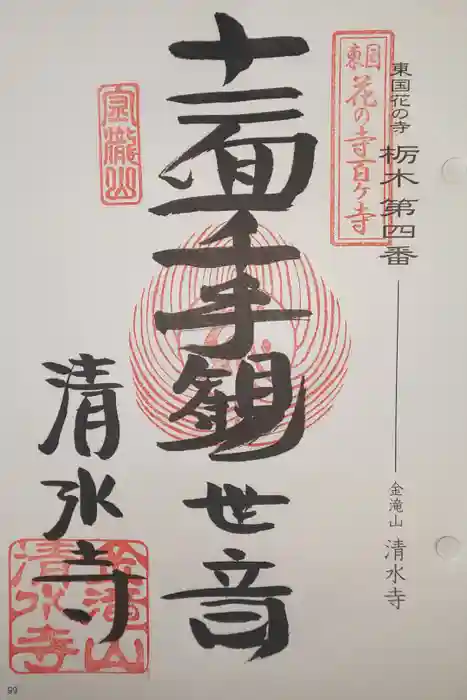 東国花の寺 栃木第四番
金滝山 清水寺
東国
花の寺百ケ寺
十一面千手観世音
金瀧山
清水寺
金瀧山
清水寺
99